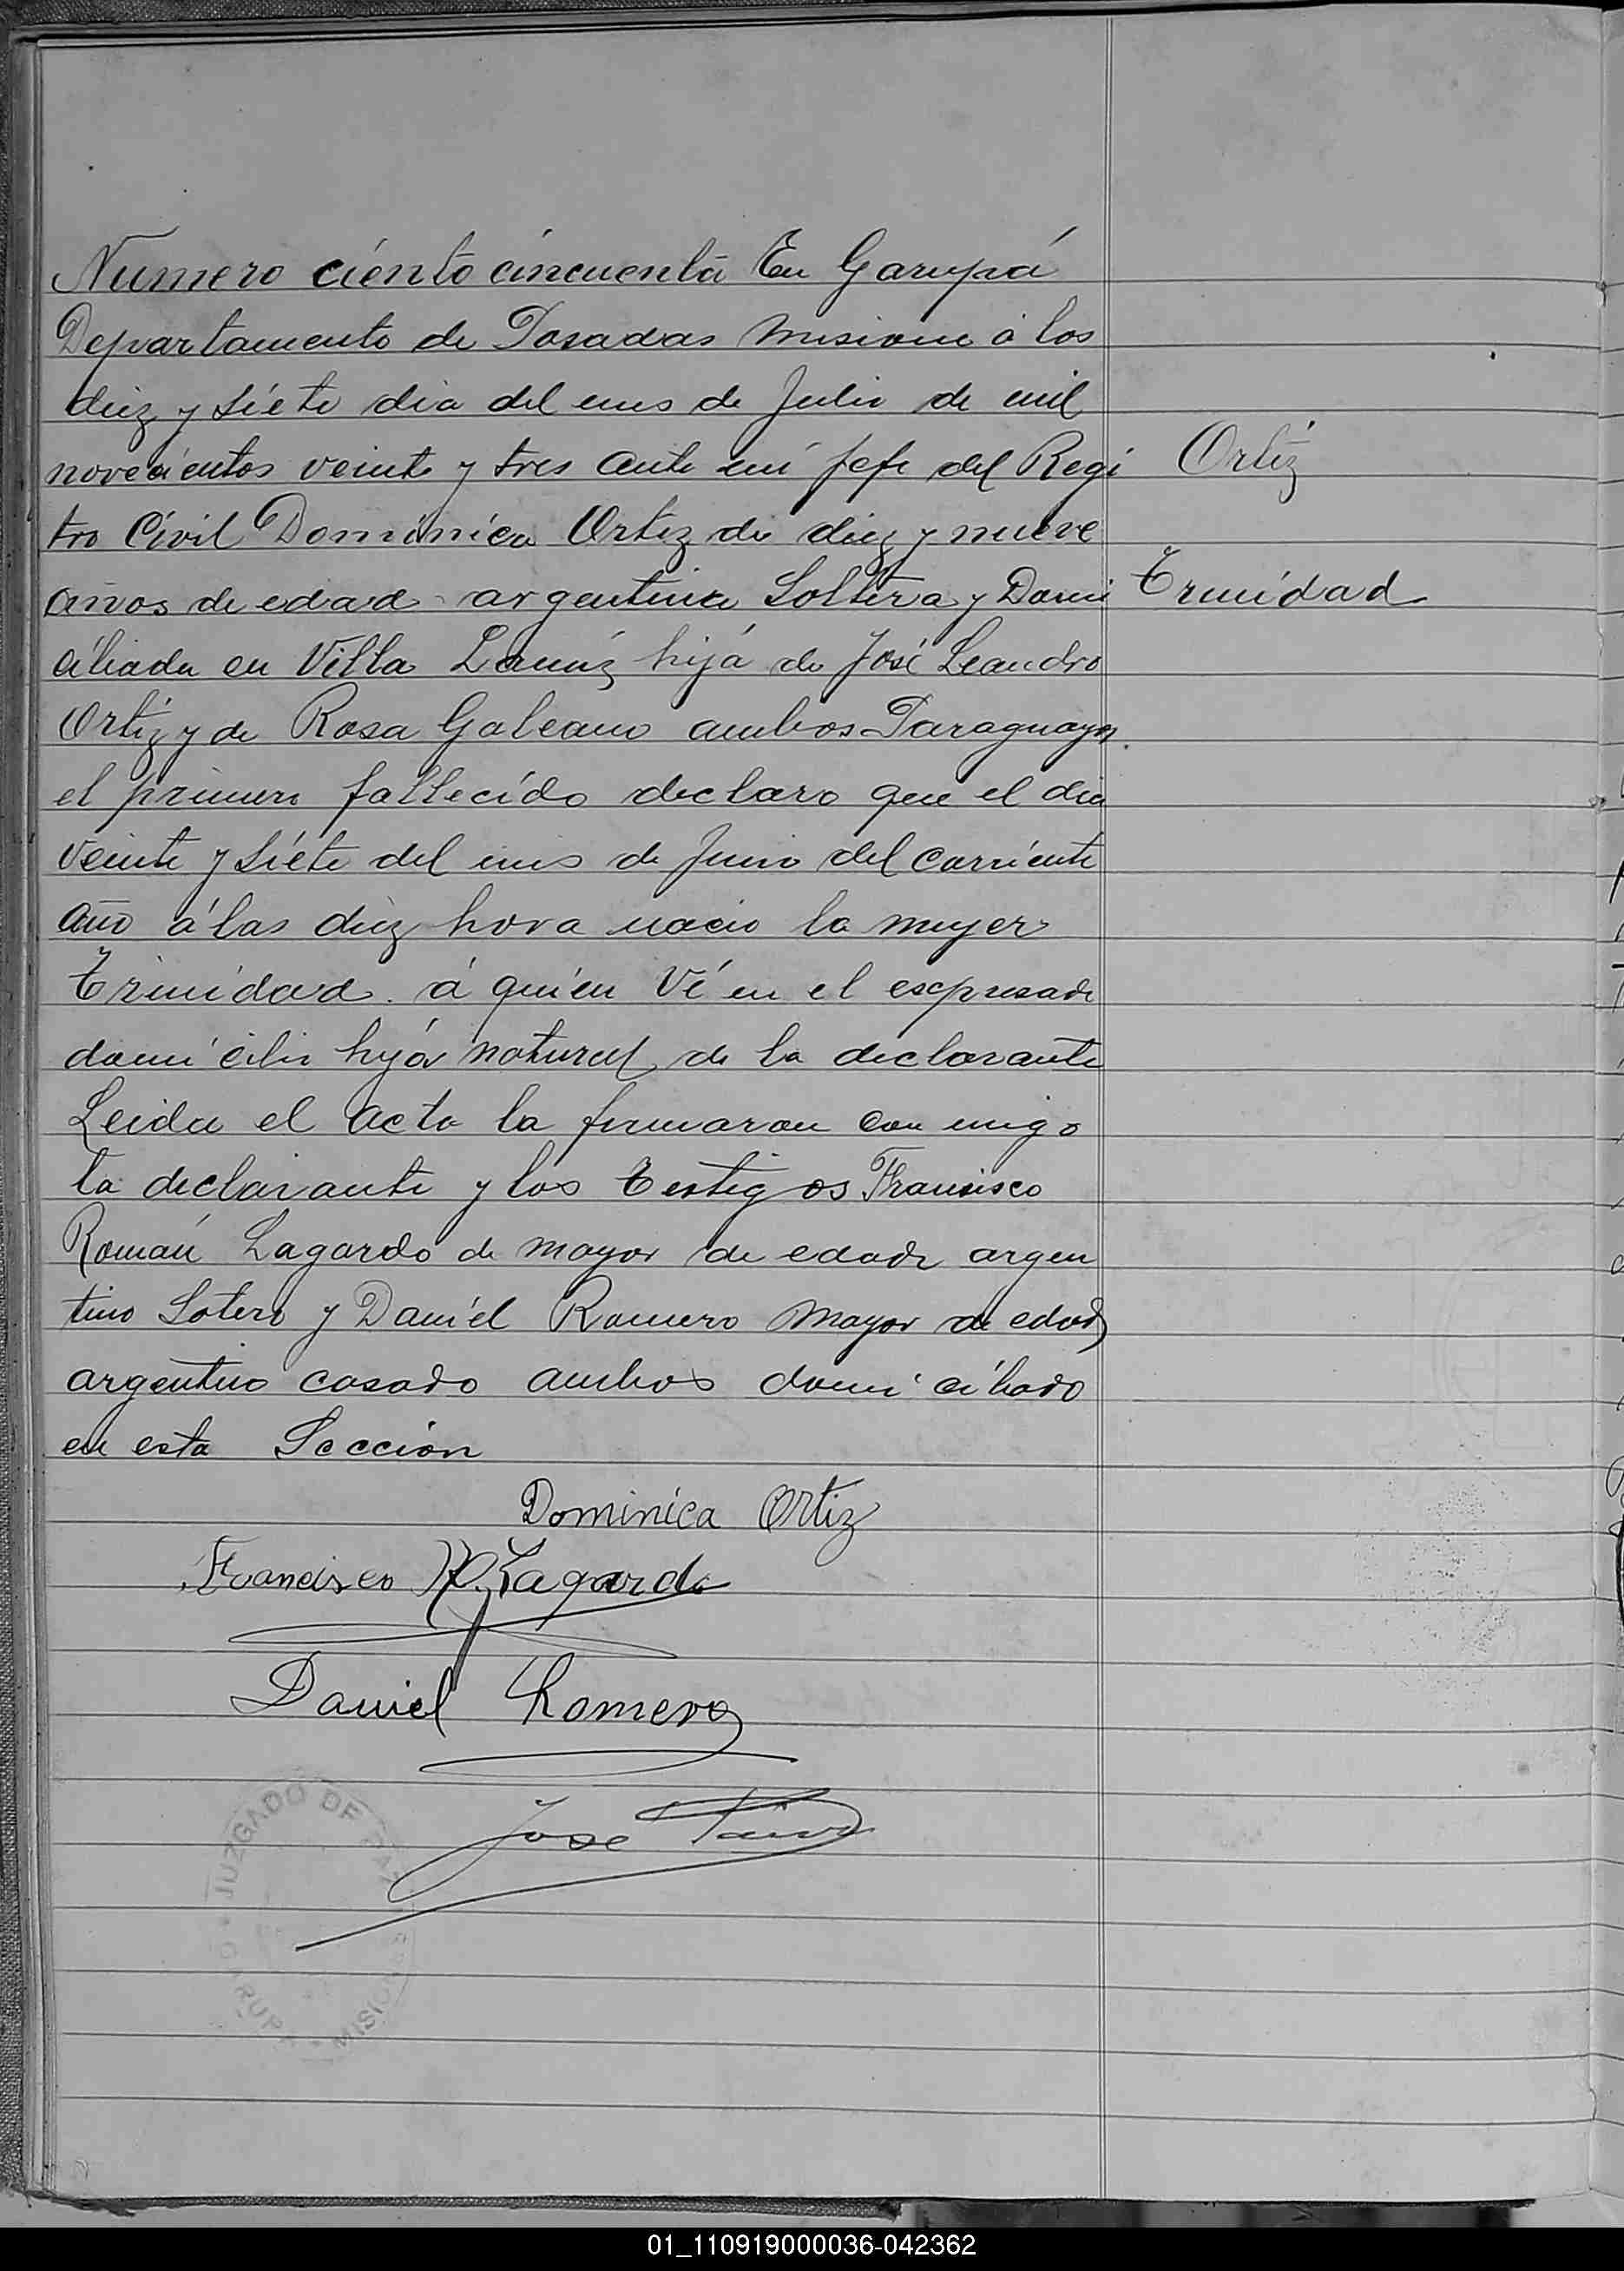 Numero ciento cincuenta En Garupá
Departamento de Posadas Misione á los
diez y siete dia del mes de Julio de mil
novecientos veinte y tres ante mi jefe del Regi
tro Civil Dominica Ortiz de diez y nueve
años de edad argentina Soltera y Domi
ciliada en Villa Lanúz hija de José Leandro
Ortiz y de Rosa Galeano ambos Paraguayos
el primero fallecido declaro que el dia
veinte y siete del mes de Junio del corriente
año á las diez hora nacio la mujer
Trinidad. á quien Vi en el expresado
domicilio hija natural de la declarante
Leida el acta la firmaron con migo
la declarante y los testigos Francisco
Román Lagardo de mayor de edad argen
tino Sotero y Daniel Romero mayor de edad
argentino casado ambos domiciliado
en esta Seccion
Ortiz
Trinidad
Dominica Ortiz
Francisco R. Lagardo
Daniel Romero
Jose
JUZGADO DE PAZ
MISIONES
01_110919000036-042362